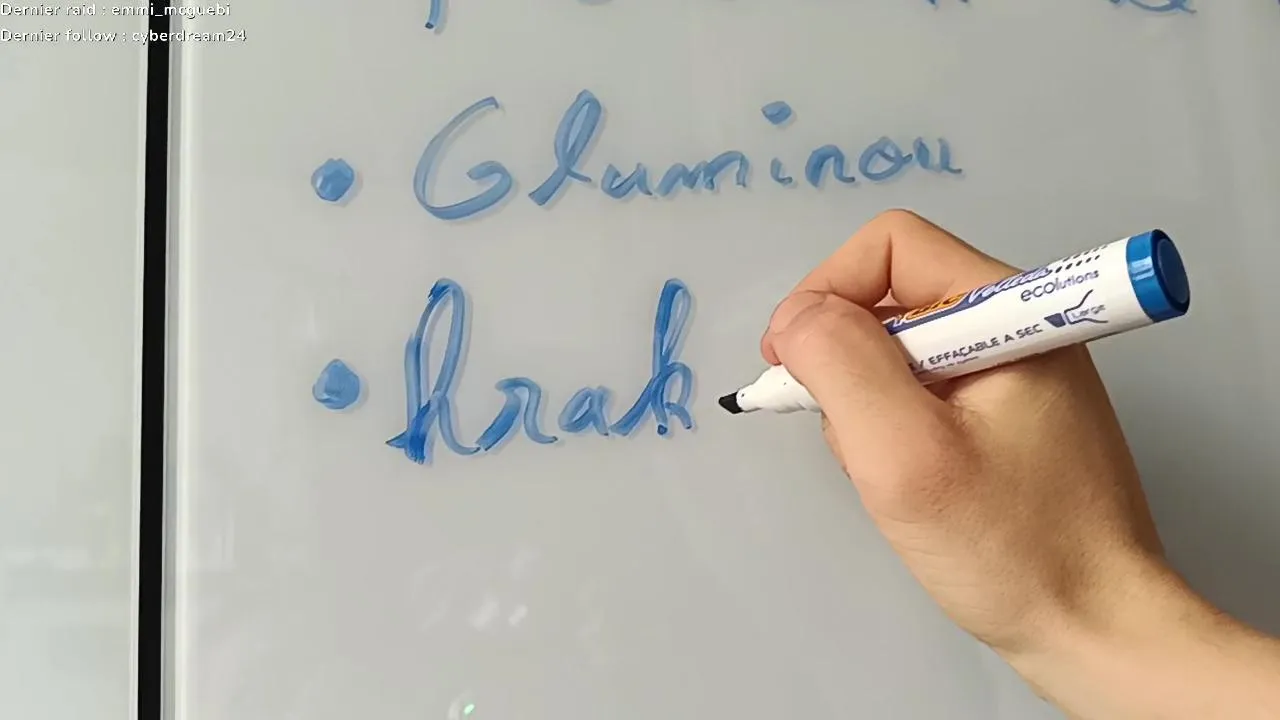 Dernier raid : emmi_mcguebi
Dernier follow : cyberdream24
• Gluminou
• krak
Velleda
ecolutions
EFFAÇABLE A SEC
Large